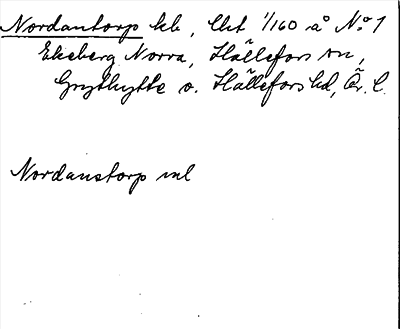 Nordantorp lul, Utst 1/160 å Nº 1
Ekeberg Norra, Hällefors sn,
Grythytte o. Hällefors hd, Ör. l.
Nordanstorp ml